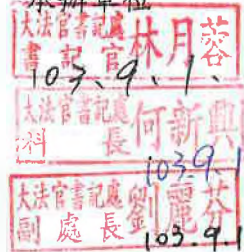 大法官書記處
書記官 林月蓉
103.9.1.
大法官書記處
科長 何新興
103.9.1
大法官書記處
副處長 劉麗芬
103.9.1